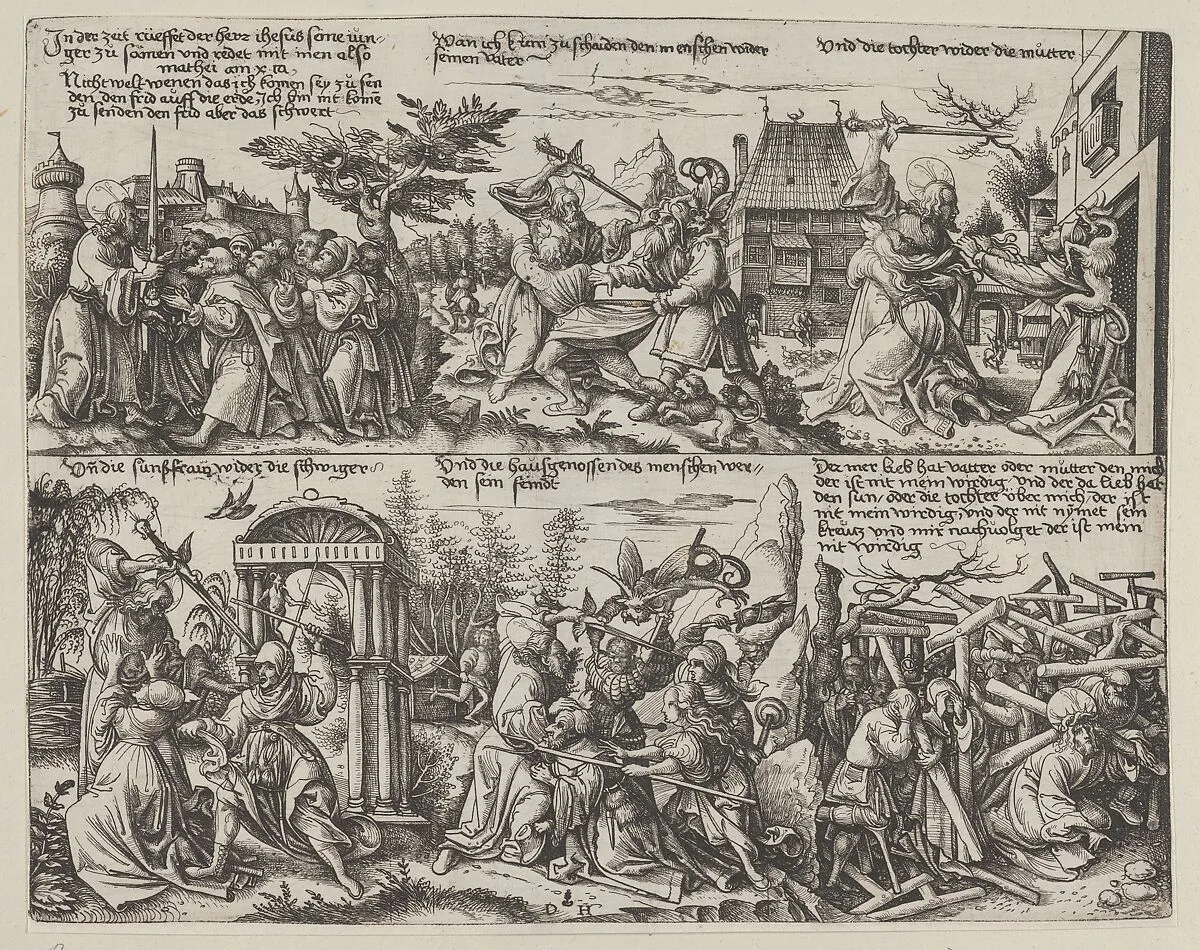 In der zeit rüeffet der herr ihesus sone iun-
ger zů sāmen vnd redet mit inen also
mathei am x. ca,
Nicht welt wenen das ich komen sey zů sen
den, den frid auff die erde, Ich bin nit komē
zů senden den frid aber das schwert
Wan ich kum zů schaiden den menschen wider
seinen vater
Vnd die tochter wider die můtter
Vn̄ die sunßfraw wider die schwiger
Vnd die hausgenossen des menschen wer-
den sein feindt
Der mer lieb hat vatter oder můtter den mich
der ist nit mein wirdig vnd der da lieb hat
den sun/ oder die tochter vber mich, der ist
nit mein wirdig, vnd der nit nymet sein
kreutz vnd mir nachuolget der ist mein
nit wirdig
D H